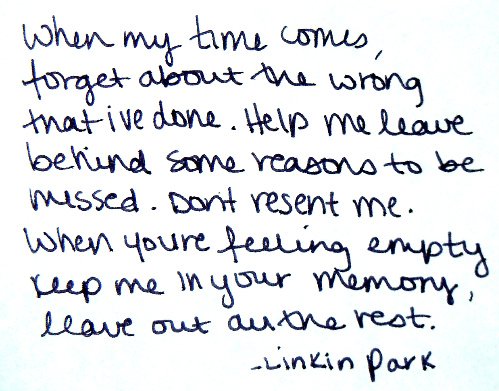 When my time comes,
forget about the wrong
that ive done. Help me leave
behind some reasons to be
missed. Dont resent me.
When youre feeling empty
keep me in your memory,
leave out all the rest.
-Linkin Park